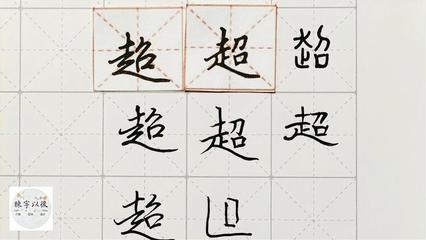 超 超 超
超 超 超
超
練字以後